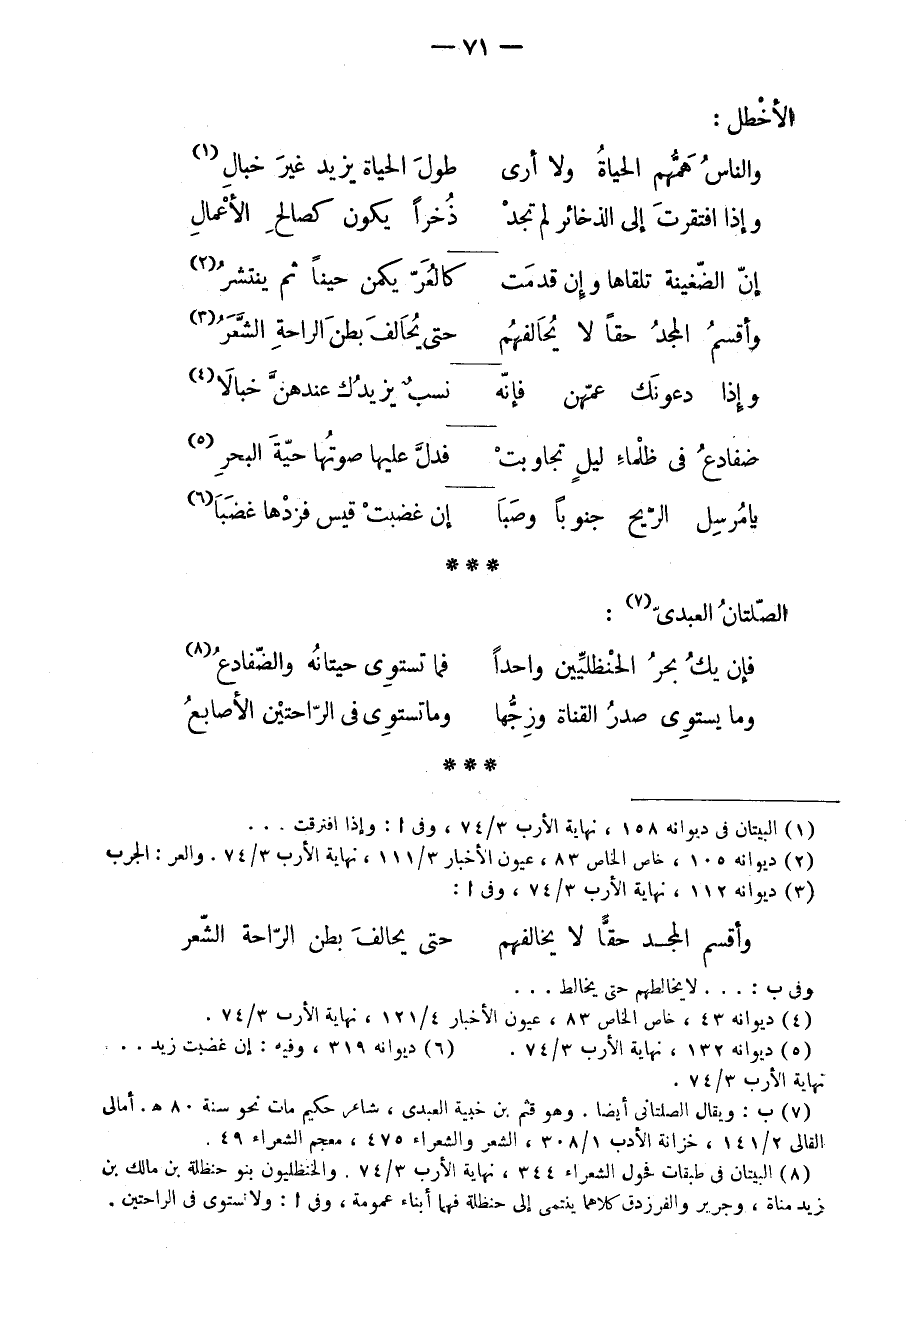 — ٧١ —
الأخْطل :
والناسُ هَمُّهم الحياةُ ولا أرى طولَ الحياة يزيد غيرَ خبالِ (١)
وإذا افتقرتَ إلى الذخائر لم تجدْ ذُخراً يكون كصالحِ الأعْمالِ
إنّ الضّغينة تلقاها وإن قدمَت كالعُرّ يكمن حيناً ثم ينتشرُ (٢)
وأقسمُ المجدُ حقاً لا يُحَالفهُم حتى يُحَالفَ بطنَ الراحةِ الشَّعَرُ (٣)
وإذا دعونَك عمّهن فإنّه نسبٌ يزيدُك عندهنَّ خبالَا (٤)
ضفادعُ فى ظلْماءِ ليلٍ تجاوبتْ فدلَّ عليها صوتُها حيّةَ البحرِ (٥)
يامُرسِل الرّيح جنوباً وصَبَا إن غضبتْ قيس فزدْها غضَبَا (٦)
***
الصّلتانُ العبدىّ (٧) :
فإن يكُ بحرُ الحنْظليِّين واحداً فما تستوِى حيتانُه والضّفادعُ (٨)
وما يستوِى صدرُ القناة وزِجُّها وما تستوِى فى الرّاحتيْن الأصابعُ
***
(١) البيتان فى ديوانه ١٥٨ ، نهاية الأرب ٧٤/٣ ، وفى ا : وإذا افترقت . . .
(٢) ديوانه ١٠٥ ، خاص الخاص ٨٣ ، عيون الأخبار ١١١/٣ ، نهاية الأرب ٧٤/٣ . والعر : الجرب
(٣) ديوانه ١١٢ ، نهاية الأرب ٧٤/٣ ، وفى ا :
وأقسم المجـد حقًّا لا يخالفهم حتى يحالفَ بطن الرّاحة الشّعر
وفى ب : . . . لا يخالطهم حتى يخالط . . .
(٤) ديوانه ٤٣ ، خاص الخاص ٨٣ ، عيون الأخبار ١٢١/٤ ، نهاية الأرب ٧٤/٣ .
(٥) ديوانه ١٣٢ ، نهاية الأرب ٧٤/٣ . (٦) ديوانه ٣١٩ ، وفيه : إن غضبت زيد . . .
نهاية الأرب ٧٤/٣ .
(٧) ب : ويقال الصلتانى أيضا . وهو قثم بن خبية العبدى ، شاعر حكيم مات نحو سنة ٨٠ هـ . أمالى
القالى ١٤١/٢ ، خزانة الأدب ٣٠٨/١ ، الشعر والشعراء ٤٧٥ ، معجم الشعراء ٤٩ .
(٨) البيتان فى طبقات فحول الشعراء ٣٤٤ ، نهاية الأرب ٧٤/٣ . والحنظليون بنو حنظلة بن مالك بن
زيد مناة ، وجرير والفرزدق كلاهما ينتمى إلى حنظلة فهما أبناء عمومة ، وفى ا : ولا تستوى فى الراحتين .